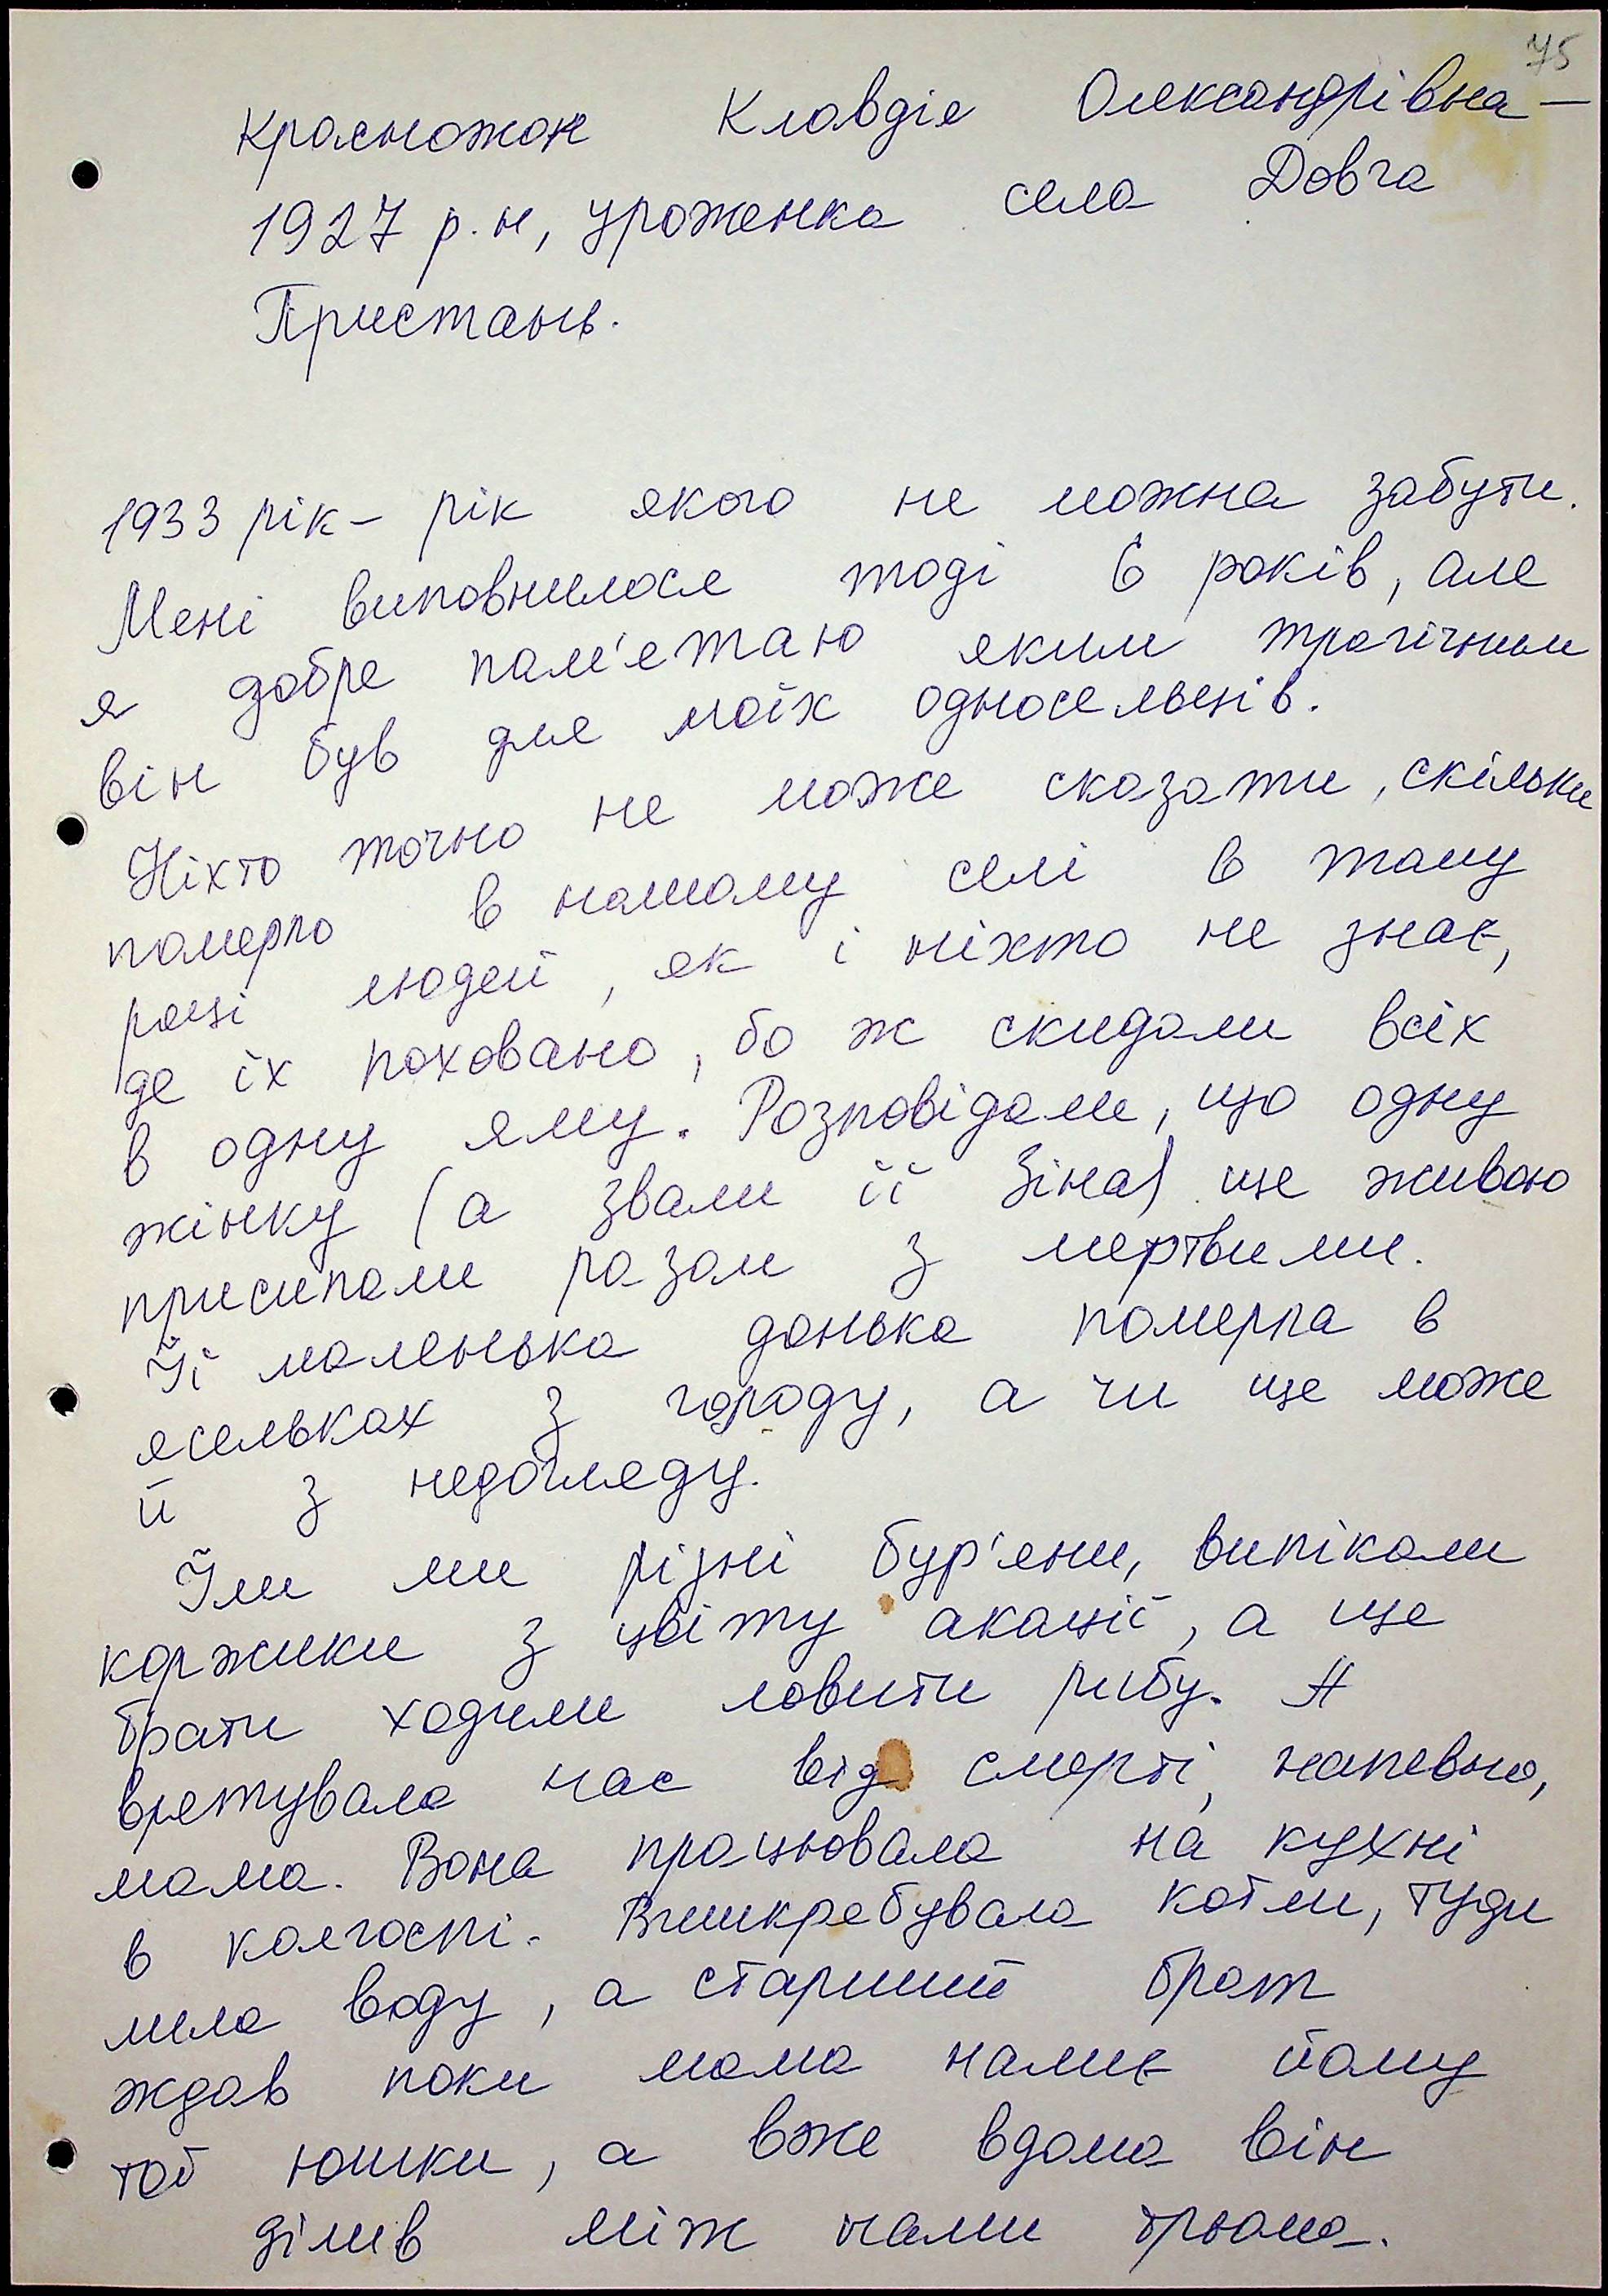 75
Красножон Клавдія Олександрівна –
1927 р.н, уроженка села Довга
Пристань.
1933 рік – рік якого не можна забути.
Мені виповнилося тоді 6 років, але
я добре пам'ятаю яким трагічним
він був для моїх односельців.
Ніхто точно не може сказати, скільки
померло в нашому селі в тому
році людей, як і ніхто не знає,
де їх поховано, бо ж скидали всіх
в одну яму. Розповідали, що одну
жінку (а звали її Зіна) ще живою
присипали разом з мертвими.
Її маленька донька померла в
ясельках з голоду, а чи ще може
й з недогляду.
Їли ми різні бур'яни, випікали
коржики з цвіту акації, а ще
брати ходили ловити рибу. А
врятувала нас від смерті, напевно,
мама. Вона працювала на кухні
в колгоспі. Вишкребувала котли, туди
лила воду, а старший брат
ждав поки мама налиє йому
тої юшки, а вже вдома він
ділив між нами трьома.